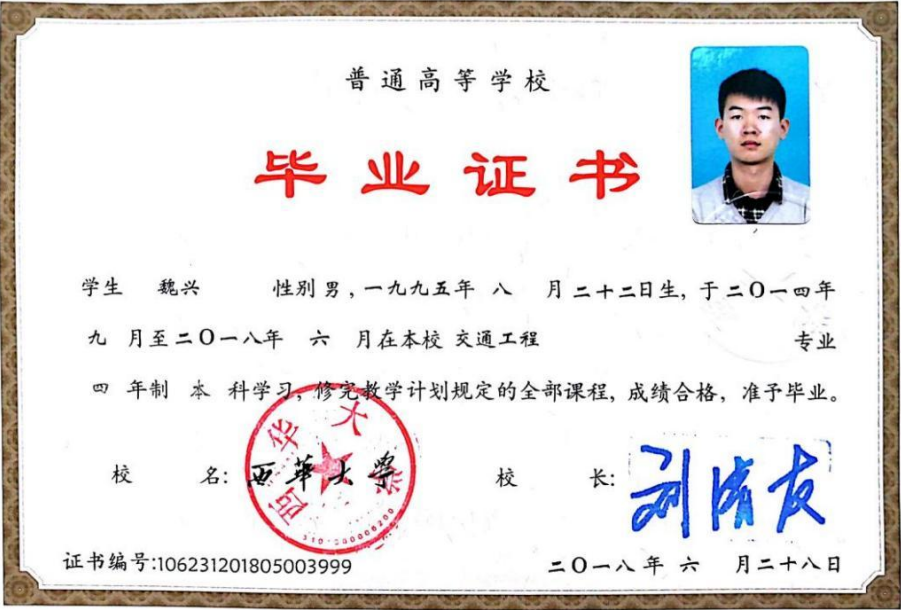 普通高等学校
毕业证书
学生 魏兴 性别 男，一九九五年 八 月二十二日生，于二〇一四年
九 月至二〇一八年 六 月在本校 交通工程 专业
四 年制 本 科学习，修完教学计划规定的全部课程，成绩合格，准予毕业。
校 名：西华大学
西華大學
校 长：刘清友
证书编号:106231201805003999
二〇一八年 六 月二十八日